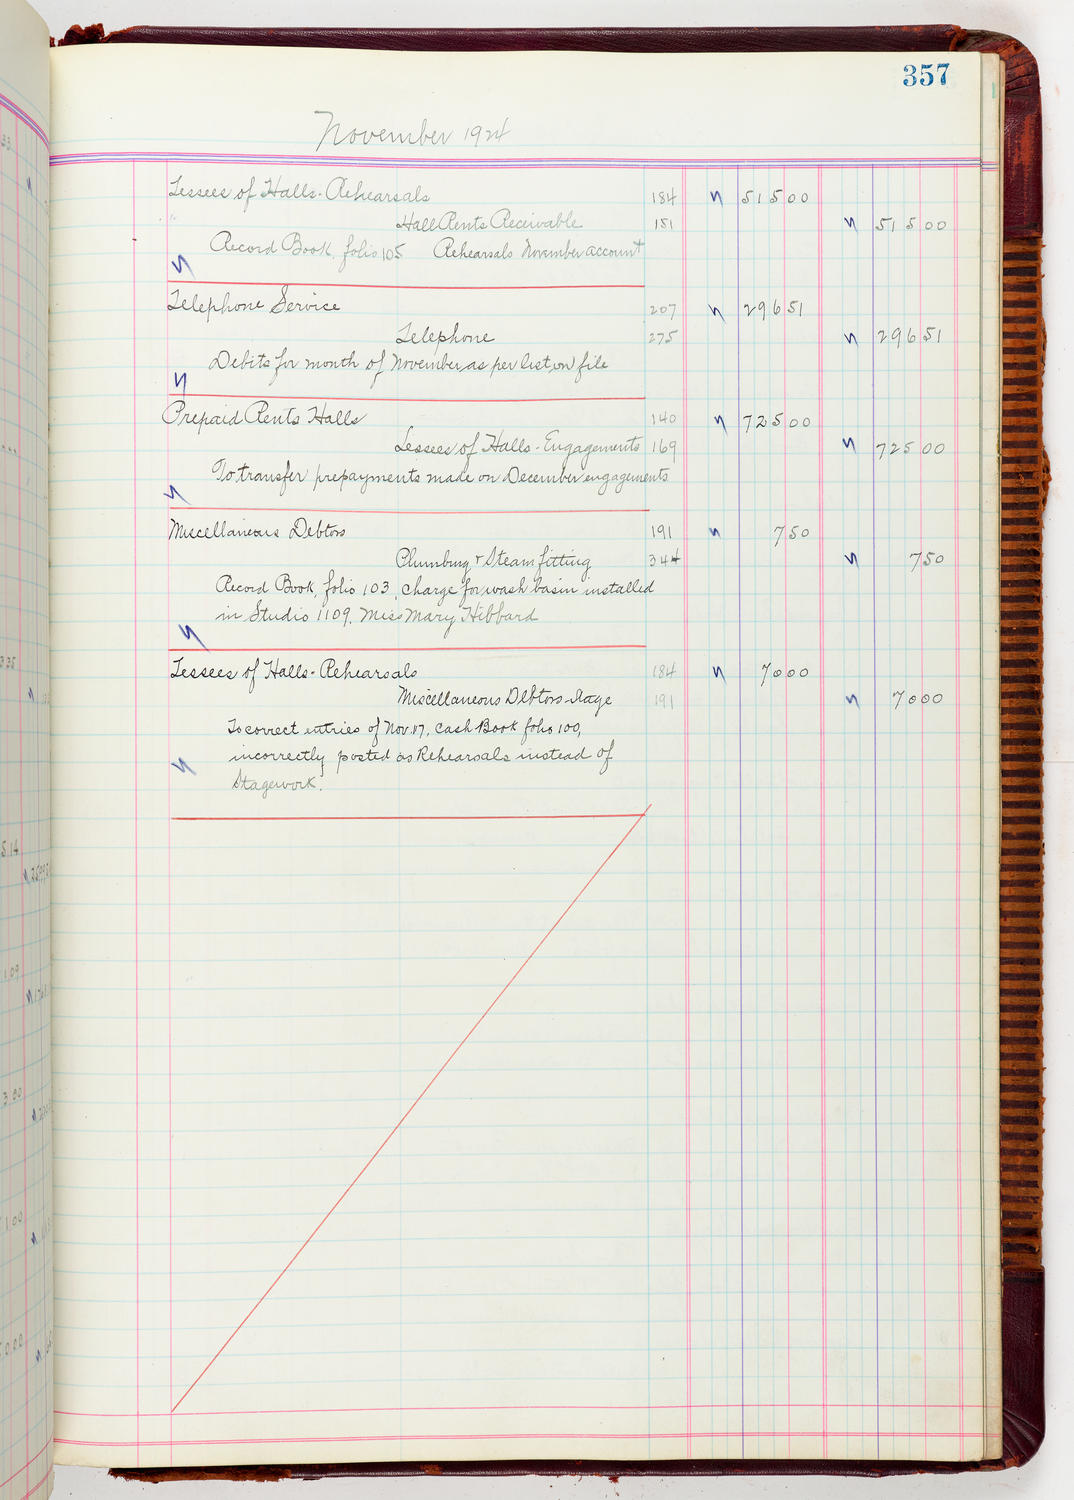 357
November 1924
Lessees of Halls - Rehearsals 184 51500
" Hall Rents Receivable 151 51500
Record Book, folio 105 Rehearsals November account
Telephone Service 207 29651
Telephone 275 29651
Debits for month of November as per list on file
Prepaid Rents Halls 140 72500
Lessees of Halls - Engagements 169 72500
To transfer prepayments made on December engagements
Miscellaneous Debtors 191 750
Plumbing & Steamfitting 344 750
Record Book, folio 103, charge for wash basin installed
in Studio 1109, Miss Mary Hibbard
Lessees of Halls - Rehearsals 184 7000
Miscellaneous Debtors - Stage 191 7000
To correct entries of Nov. 17, Cash Book folio 100,
incorrectly posted as Rehearsals instead of
Stagework.